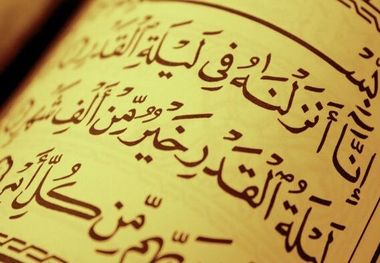 إِنَّا أَنزَلْنَٰهُ فِي لَيْلَةِ الْقَدْرِ
لَيْلَةُ الْقَدْرِ خَيْرٌ مِّنْ أَلْفِ شَهْرٍ
مِّن كُلِّ